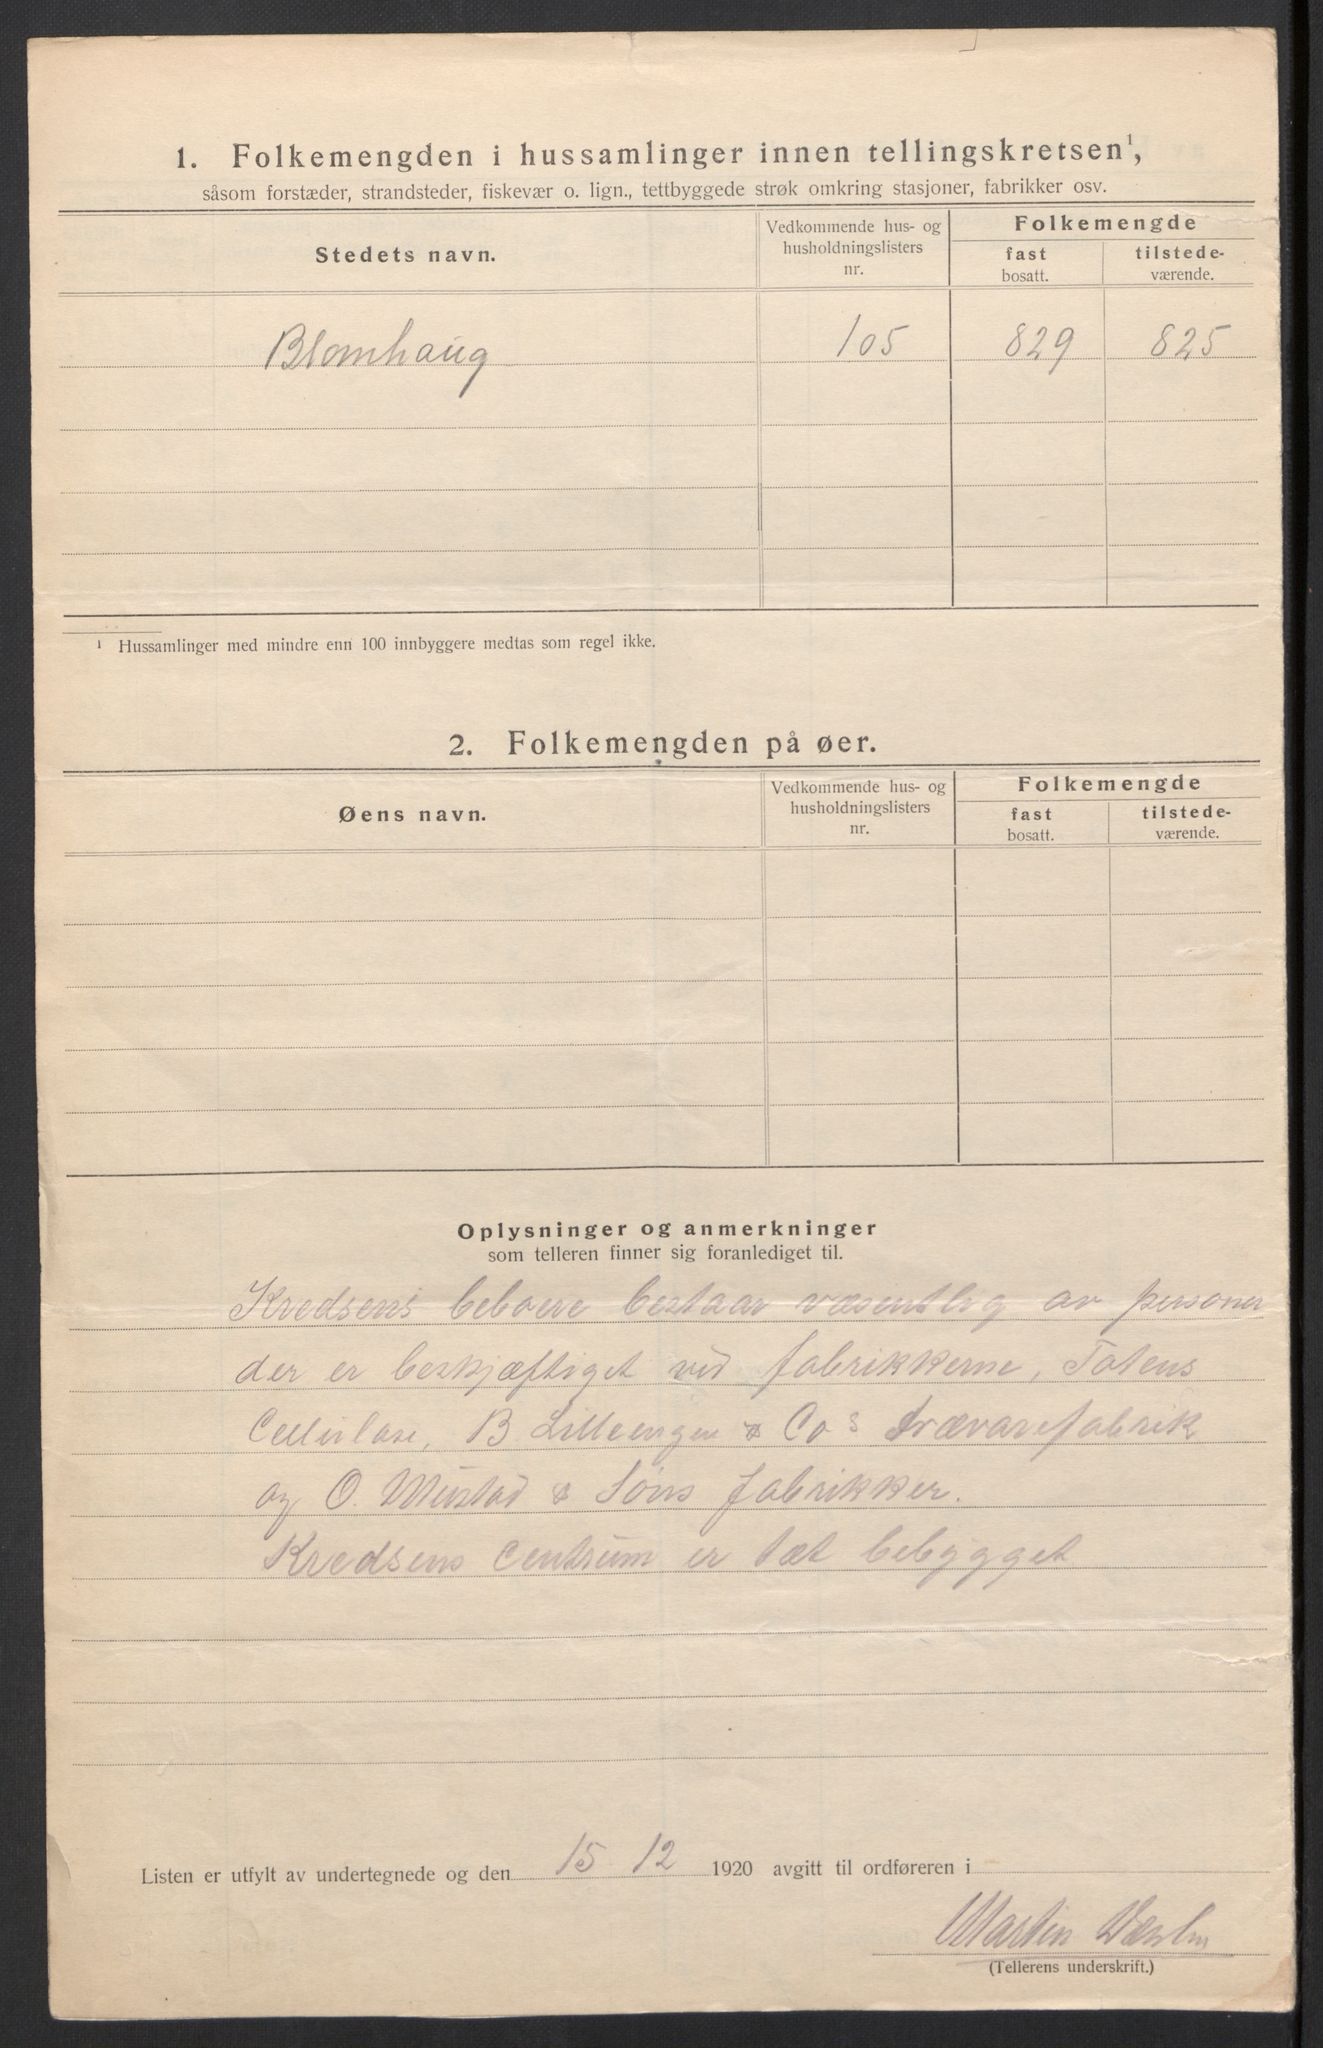 1. Folkemengden i hussamlinger innen tellingskretsen¹,
såsom forstæder, strandsteder, fiskevær o. lign., tettbyggede strøk omkring stasjoner, fabrikker osv.
Stedets navn.
Vedkommende hus- og
husholdningslisters
nr.
Folkemengde
fast
bosatt.
tilstede-
værende.
Blomhaug 105 829 825
¹ Hussamlinger med mindre enn 100 innbyggere medtas som regel ikke.
2. Folkemengden på øer.
Øens navn.
Vedkommende hus- og
husholdningslisters
nr.
Folkemengde
fast
bosatt.
tilstede-
værende.
Oplysninger og anmerkninger
som telleren finner sig foranlediget til.
Kredsens beboere bestaar væsentlig av personer
der er beskjæftiget ved fabrikkerne, Totens
Cellulose, B Lilleengen & Co s trævarefabrik
og O. Mustad & Søns fabrikker.
Kredsens Centrum er tæt bebygget
Listen er utfylt av undertegnede og den 15 12 1920 avgitt til ordføreren i
Martin
(Tellerens underskrift.)